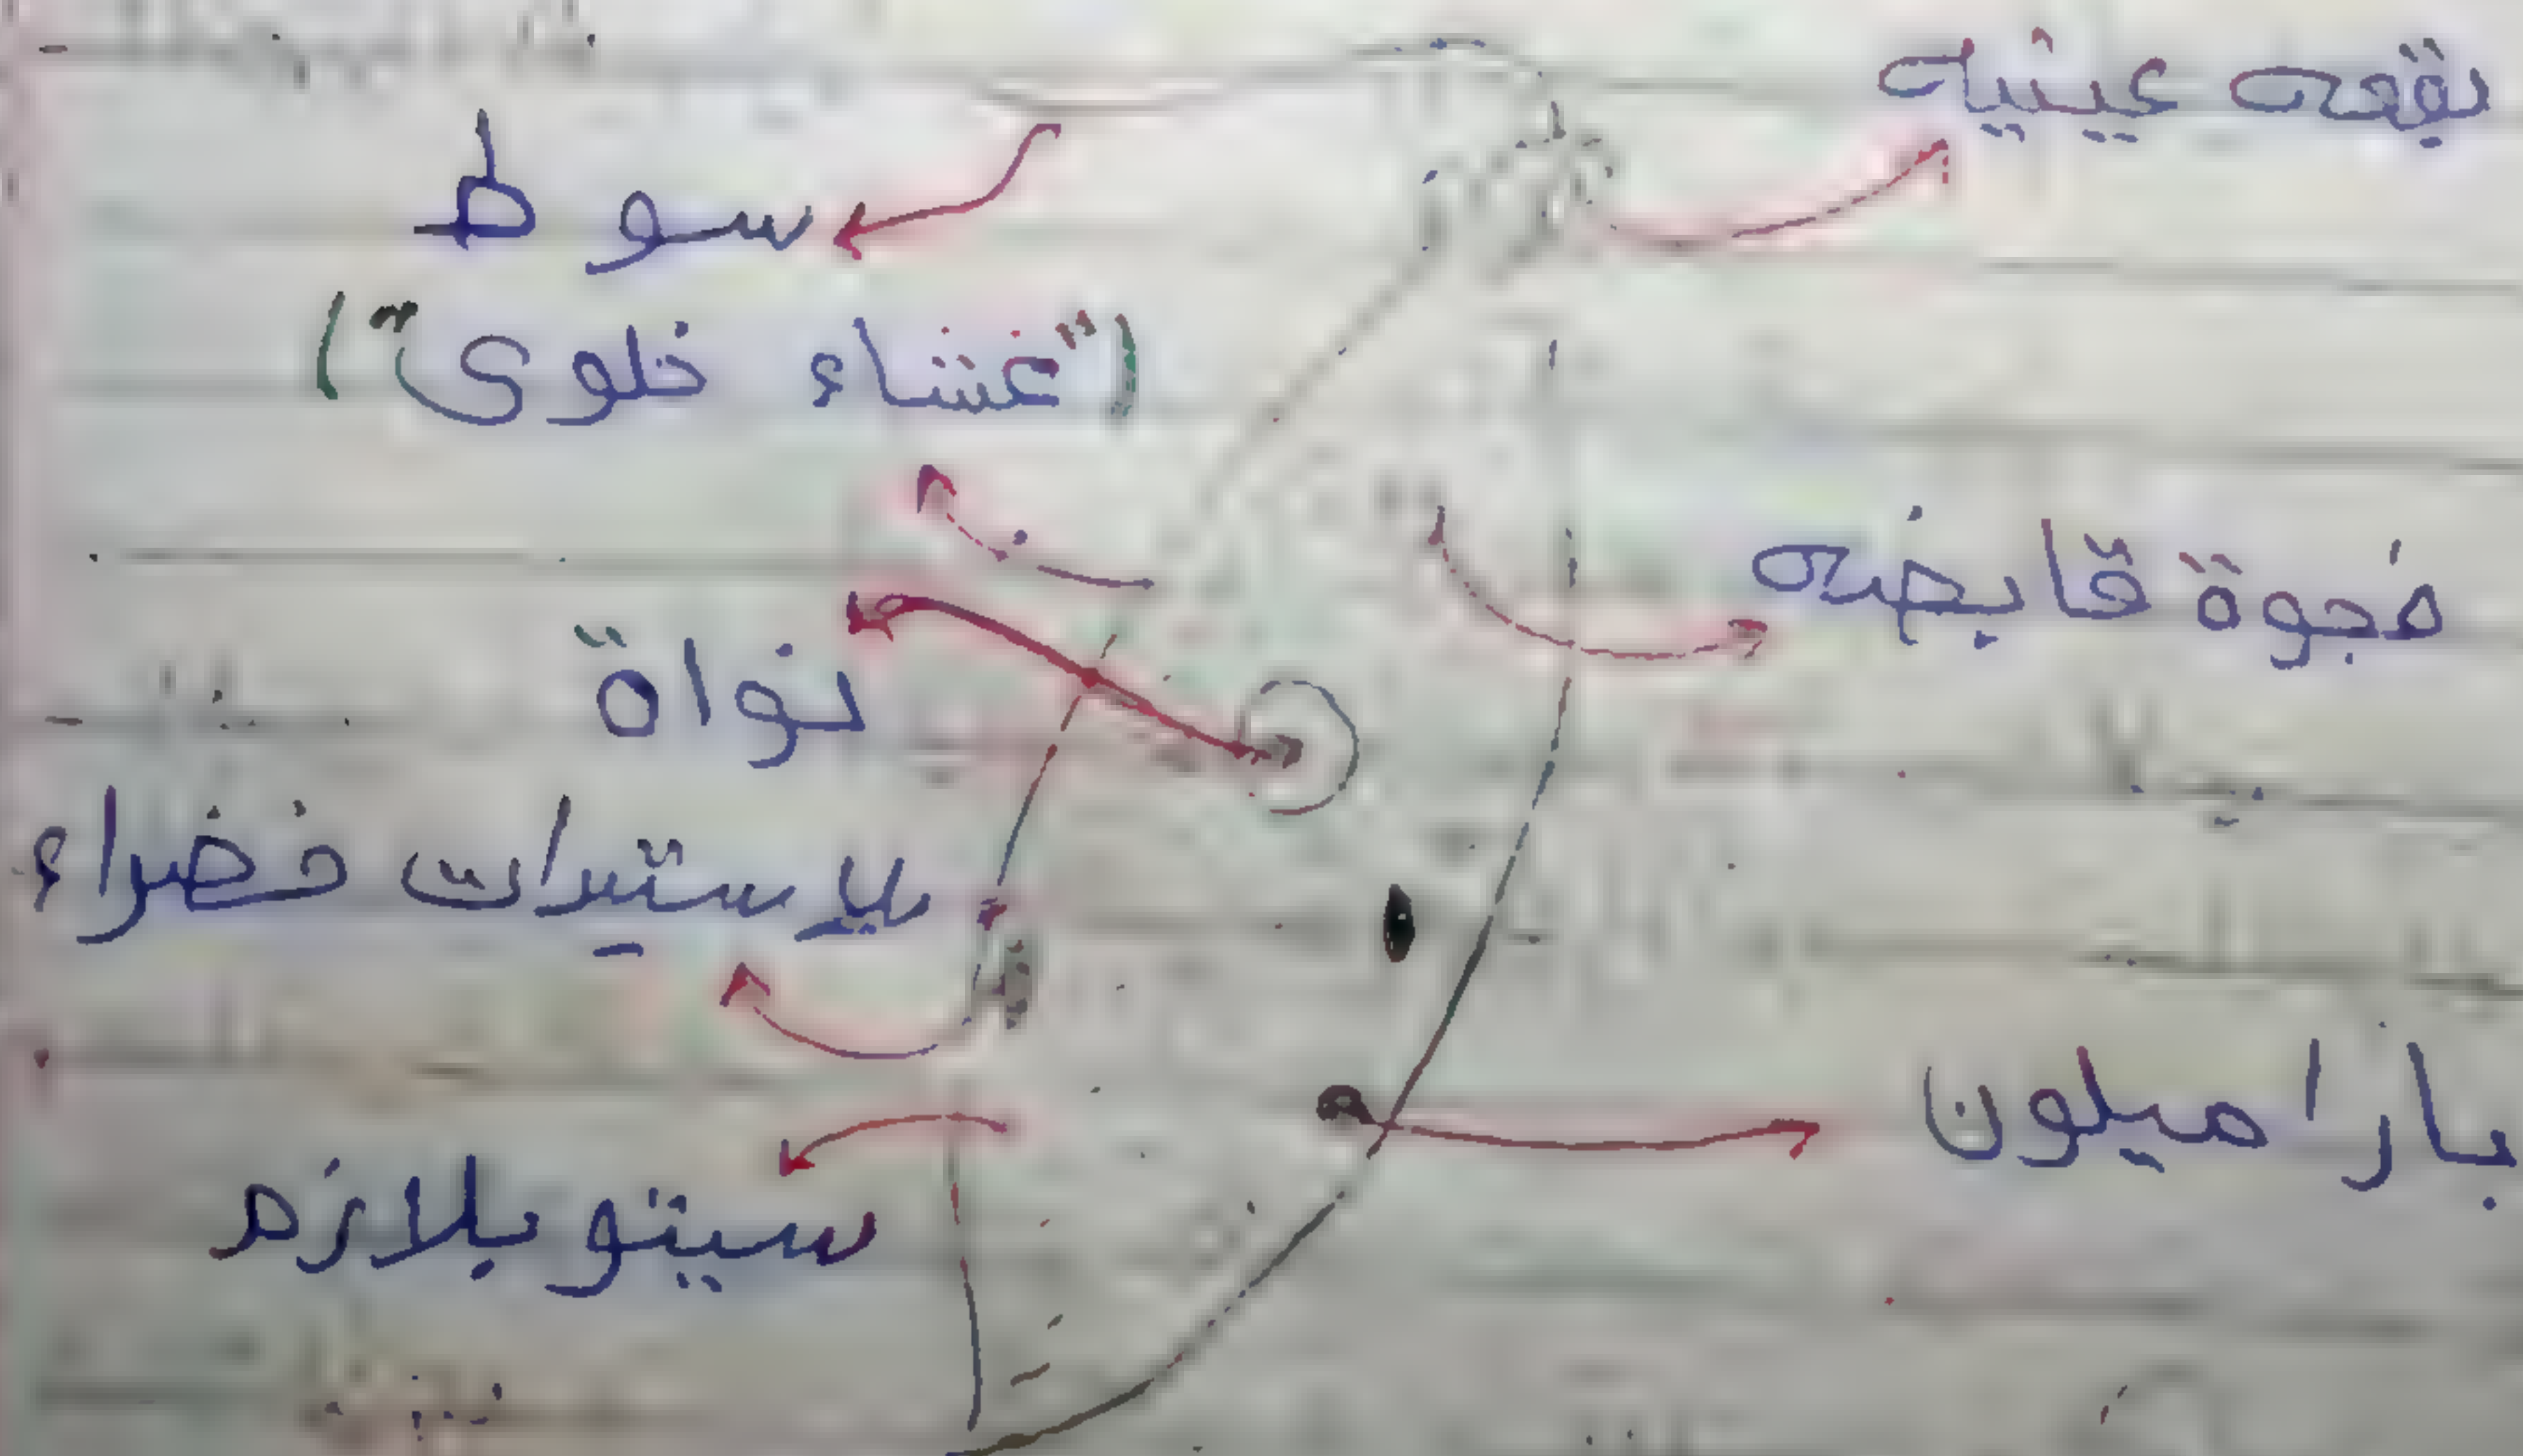 بقعه عينيه
سوط
("غشاء خلوى")
فجوة قابضه
نواة
بلاستيدات خضراء
باراميلون
سيتوبلازم